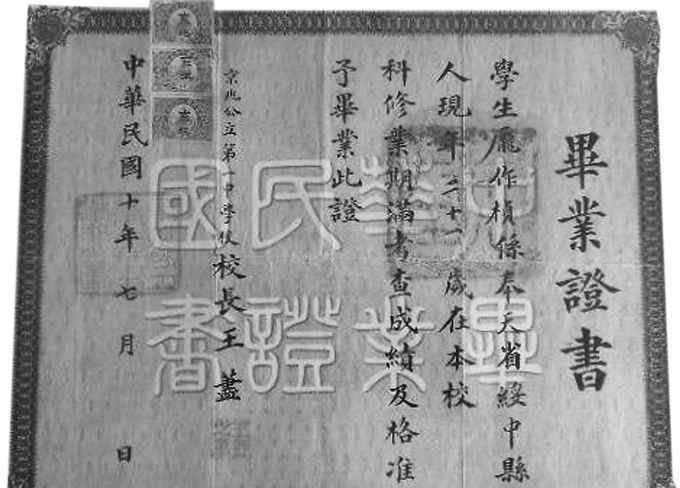 畢業證書
學生龐作楨係奉天省綏中縣
人現年二十一歲在本校
科修業期滿考查成績及格准
予畢業此證
京兆公立第一中學校校長王蓋
中華民國十年七月 日
中華民國
畢業證書